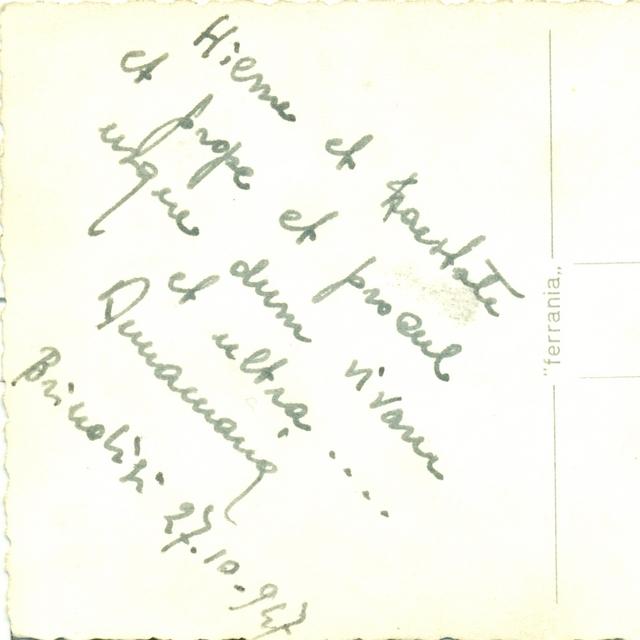 Hieme et haestate
et prope et procul
usque dum vivam
et ultra ....
Brindisi 27.10.947
"ferrania"